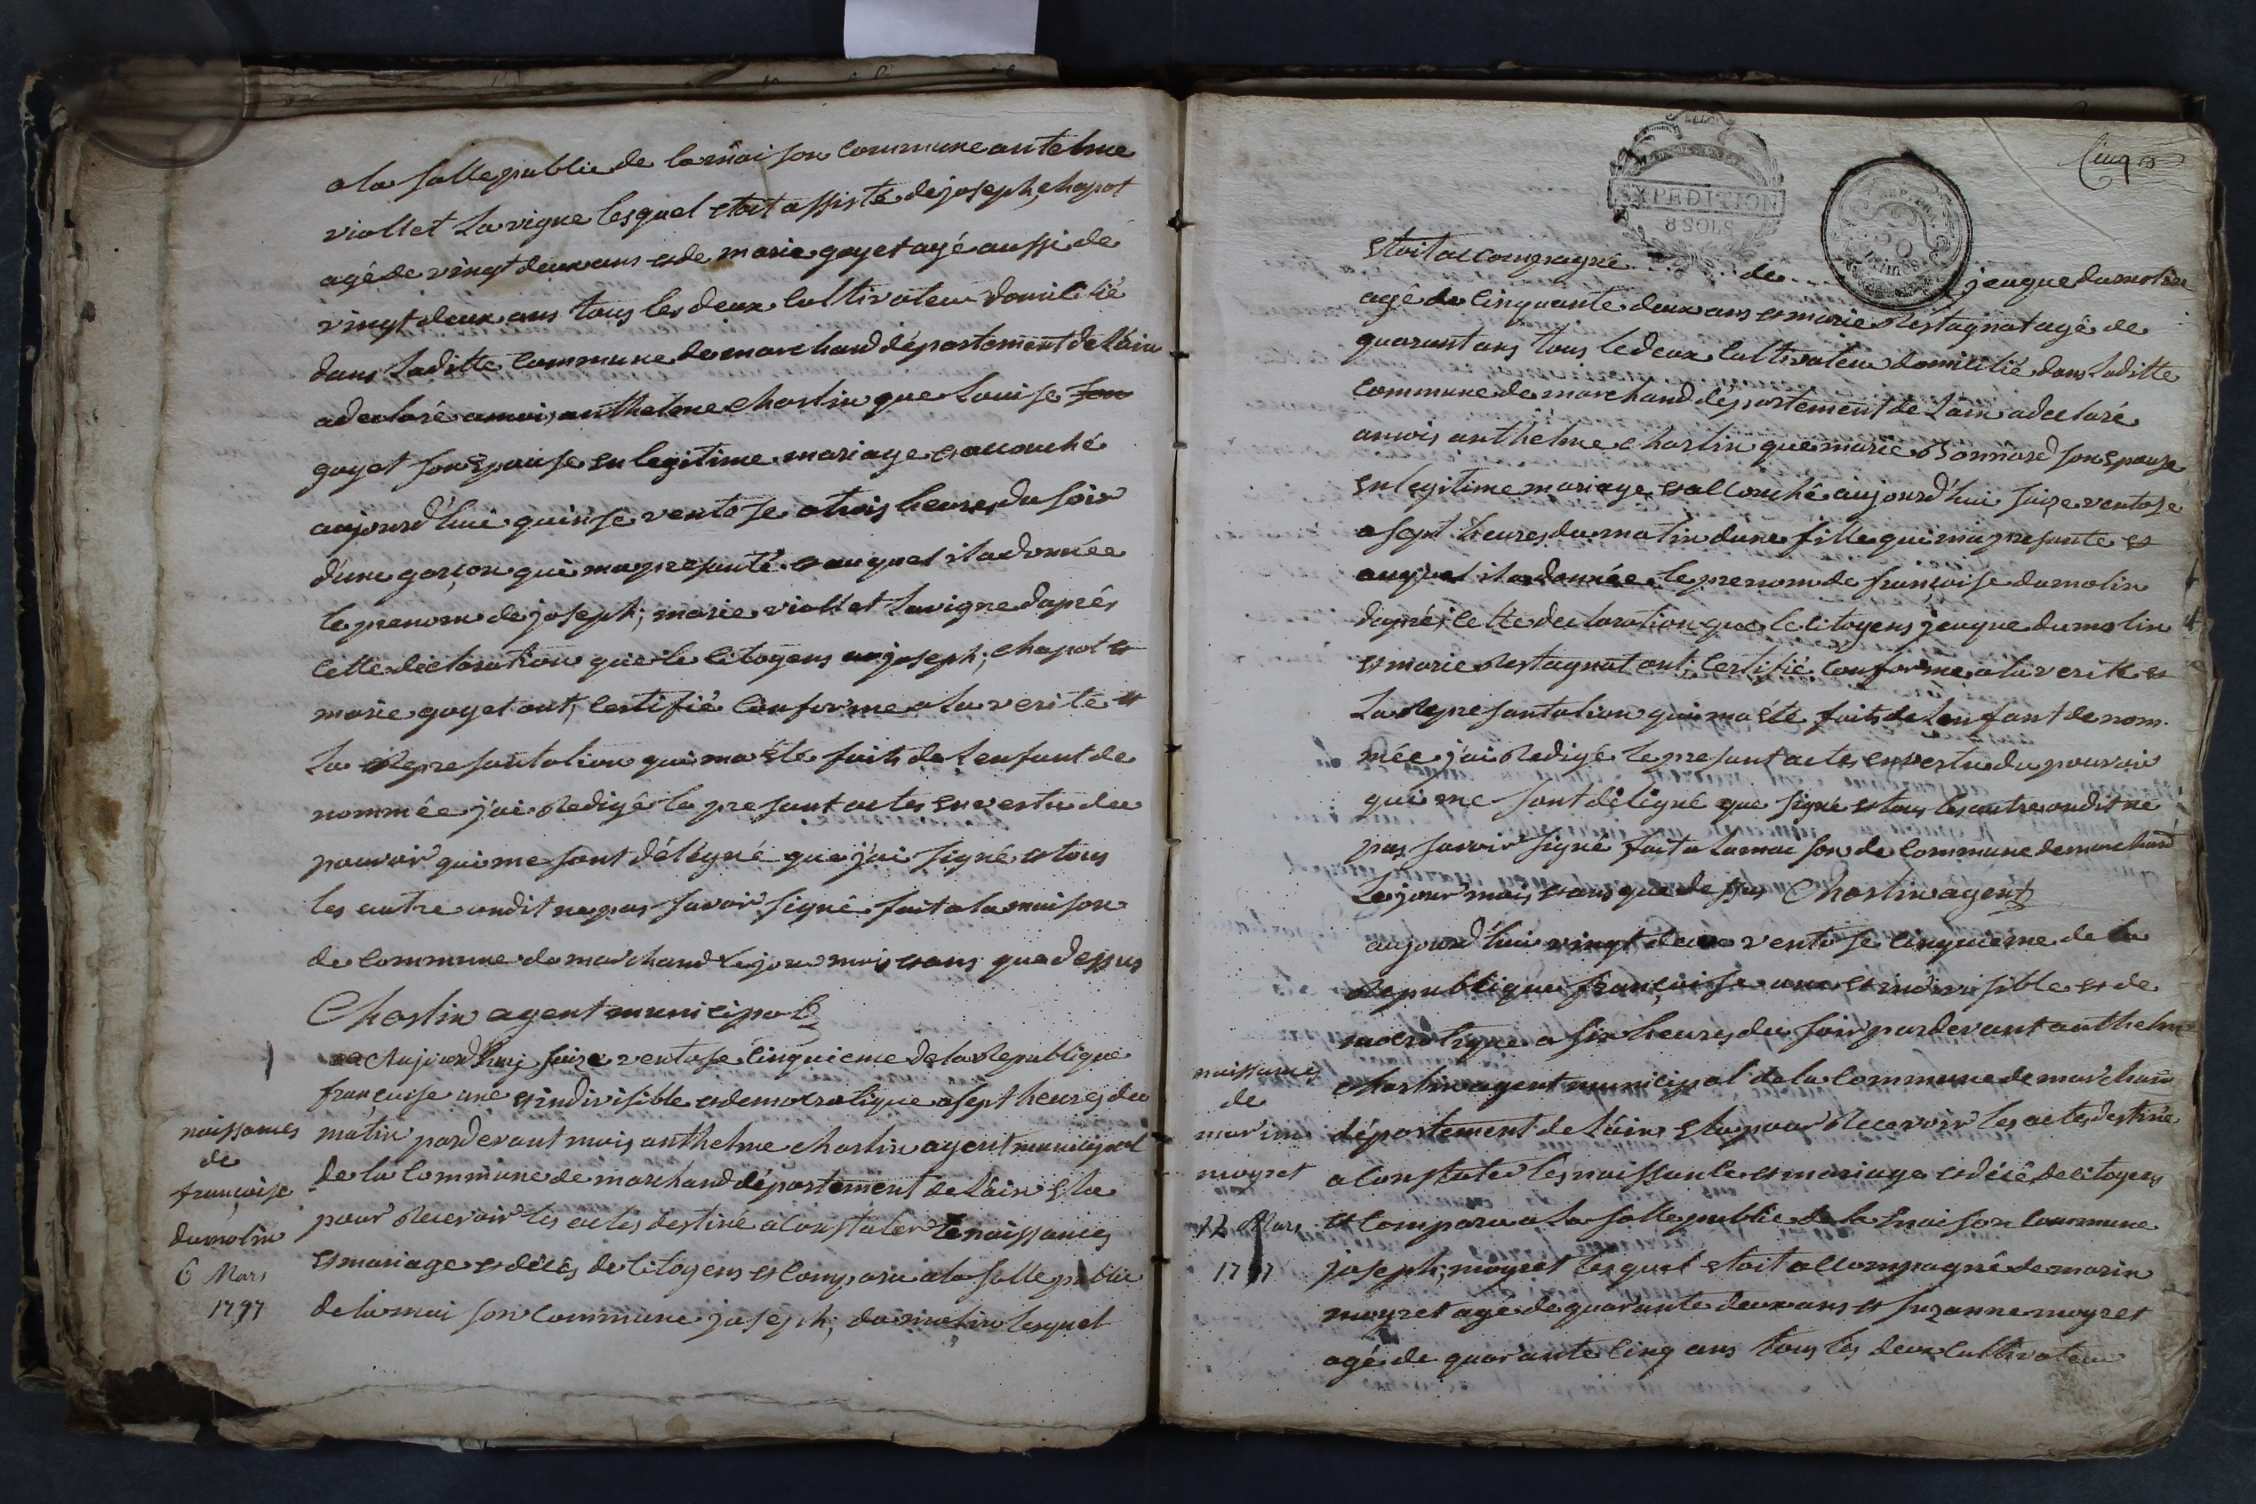 a la salle public de la mai son commune antelme
viollet Lavigne lesquel etoit assisté de joseph, chapot
agé de vingt deux ans et de marie goyet agé aussi de
vingt deux ans tous les deux Cultivateur domicilié
dans Laditte Commune de marchand département de Lain
a declaré a mois anthelme Charlin que Louise
goyet son Epouse en legitime mariage et accouché
aujourd'hui quinse ventose a trois heures du soir
d'une garçon qui ma presanté et auquel il a donnée
le prenom de joseph; marie viollet Lavigne daprés
Cette déclaration que le Citoyens joseph; chapot et
marie goyet ont, Certifié Conforme a la verité et
La Represantation qui ma été faits de L'enfant de
nommée j'ai Redigé le presant actes en vertu du
pouvoir qui me sont délégné que j'ai signé et tous
les autre ondit ne pas savoir signé fait a la maison
de Commune de marchand le jour mois et ans que dessus
Charlin agent municipal
Aujourd'huy saize ventose Cinquieme de la Republique
françaisse une et indivisible et democratique a sept heures du
matin pardevant mois anthelme charlin agent municipal
de la Commune de marchand département de Lain Elu
pour Recevoir les actes destiné a Constater le naissances
et mariage et décés de Citoyens et Comparu a la salle public
de la mai son Commune joseph; dumolin lesquel
naissances
de
françoise
dumolin
6 Mars
1797
Cinq
EXPEDITION
8 SOLS
50
etoit accompagné de jeuque dumolin
agé de Cinquante deux ans et marie Restagnat agé de
quarant ans tous le deux Cultivateur domicilié dans Laditte
Commune de marchand département de Lain a declaré
a mois anthelme charlin que marie Bonnard son Epouse
en legitime mariage et accouché aujourd'hui saize ventose
a sept heures du matin dune fille qui ma presanté et
auquel il a donnée le prenom de françoise dumolin
daprés Cette declaration que le Citoyens jeuque dumolin
et marie Restagnat ont; Certifié Conforme a la verité et
La Represantation qui ma été faits de Lenfant de nom
mée j'ai Redigé le presant actes en vertu du pouvoir
qui me sont délégné que signé et tous les autre ondit ne
pas savoir signé fait a La mai son de Commune de marchand
Le jour mois et ans que dessus Charlin agent
aujourd'hui vingt deux ventose Cinquieme de la
Republique françaisse une et indivisible et de
mocratique a six heures du soir pardevant anthelme
charlin agent municipal de la Commune de marchand
département de Lain Elu pour Recevoir les actes destiné
a Constater les naissance et mariage et décé de Citoyens
et Comparu a La salle public de la mai son Commune
joseph; moyret lesquel etoit accompagné de marin
moyret agé de quarante deux ans et suzanne moyret
agé de quarante Cinq ans tous les deux Cultivateur
naissances
de
marin
moyret
12 Mars
1797